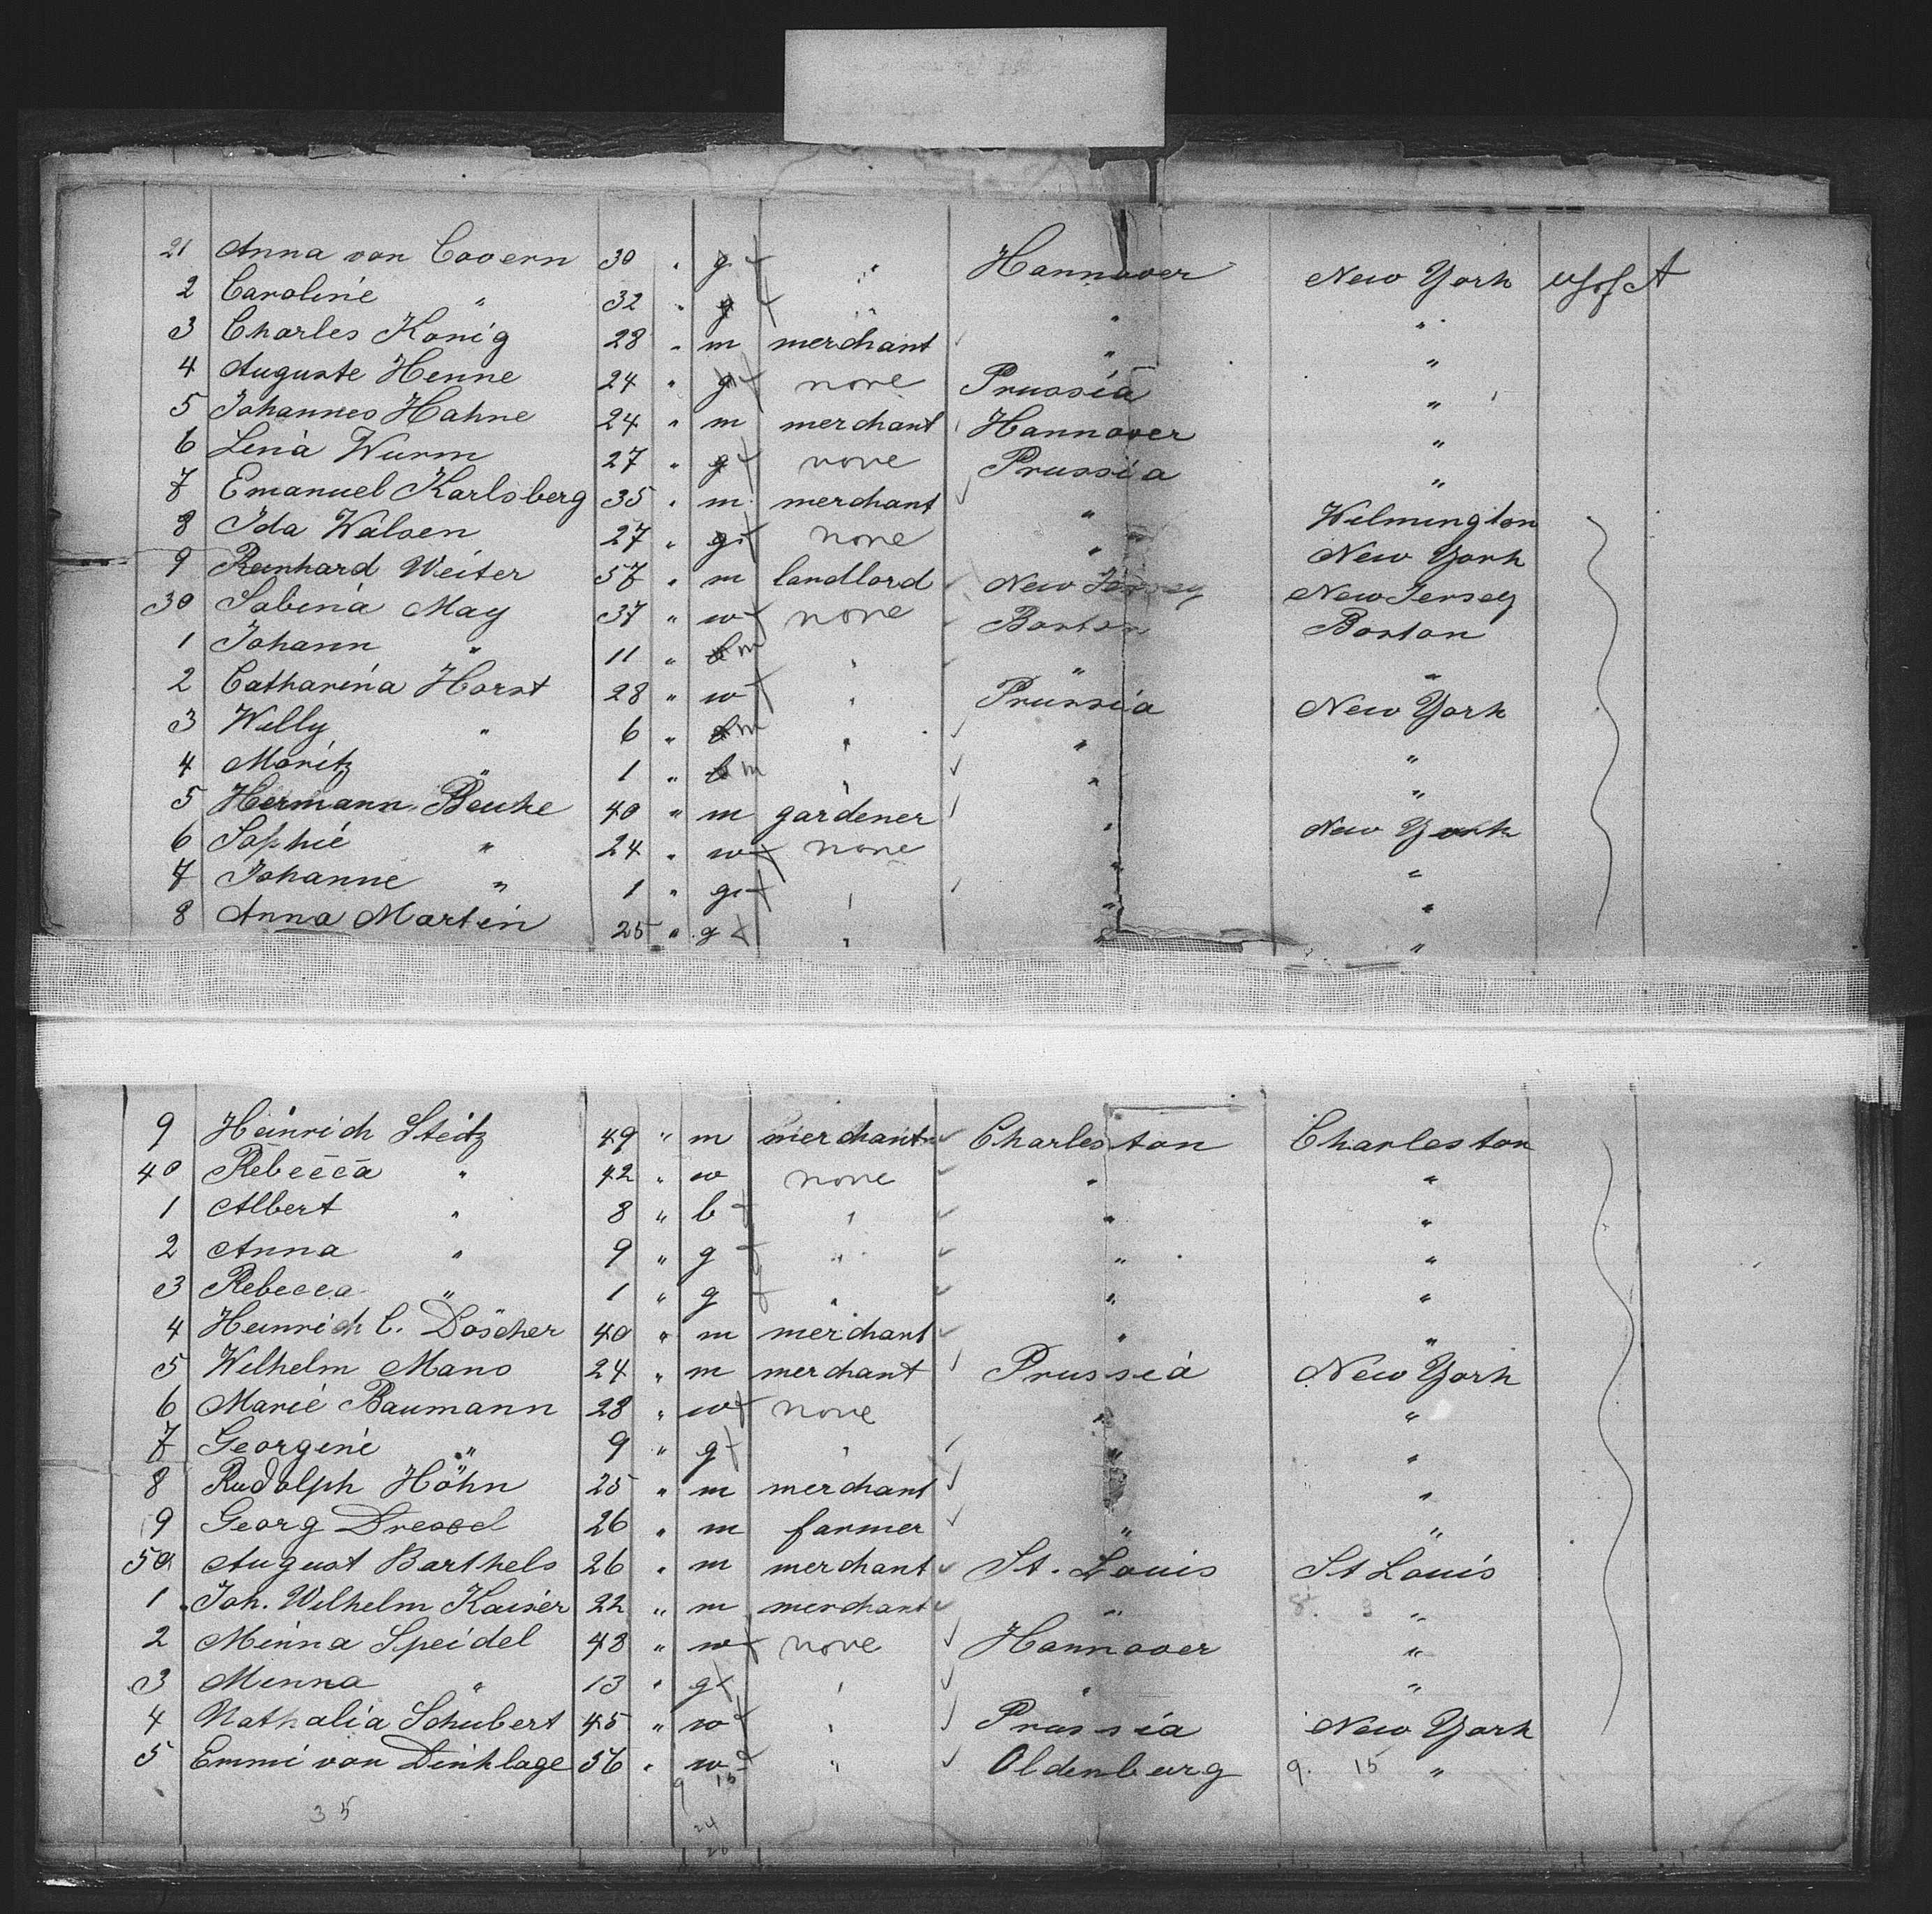 21 Anna von Covern 30 " g " Hannover New York
2 Caroline " 32 " g " " "
3 Charles König 28 " m merchant " "
4 Auguste Henne 24 " g none Prussia "
5 Johannes Hahne 24 " m merchant Hannover "
6 Lina Wurm 27 " g none Prussia "
7 Emanuel Karlsberg 35 " m merchant " Wilmington
8 Ida Walsen 27 " g none " New York
9 Reinhard Weiter 57 " m landlord New Jersey New Jersey
30 Sabina May 37 " w none Boston Boston
1 Johann " 11 " m " " "
2 Catharina Horst 28 " w " Prussia New York
3 Willy " 6 " m " " "
4 Moritz " 1 " m " " "
5 Hermann Beuke 40 " m gardener " New York
6 Sophie " 24 " w none " "
7 Johanne " 1 " g " " "
8 Anna Martin 25 " g " " "
9 Heinrich Steitz 49 " m merchant Charleston Charleston
40 Rebecca " 42 " w none " "
1 Albert " 8 " b " " "
2 Anna " 9 " g " " "
3 Rebecca " 1 " g " " "
4 Heinrich C. Döscher 40 " m merchant " "
5 Wilhelm Mans 24 " m merchant Prussia New York
6 Marie Baumann 28 " w none " "
7 Georgine " 9 " g " " "
8 Rudolph Höhn 25 " m merchant " "
9 Georg Dressel 26 " m farmer " "
50 August Barthels 26 " m merchant St. Louis St Louis
1 Joh. Wilhelm Kaiser 22 " m merchant " "
2 Minna Speidel 48 " w none Hannover "
3 Minna " 13 " g " " "
4 Nathalia Schubert 45 " w " Prussia New York
5 Emmi von Dinklage 56 " w " Oldenburg 9. 15 "
35
24